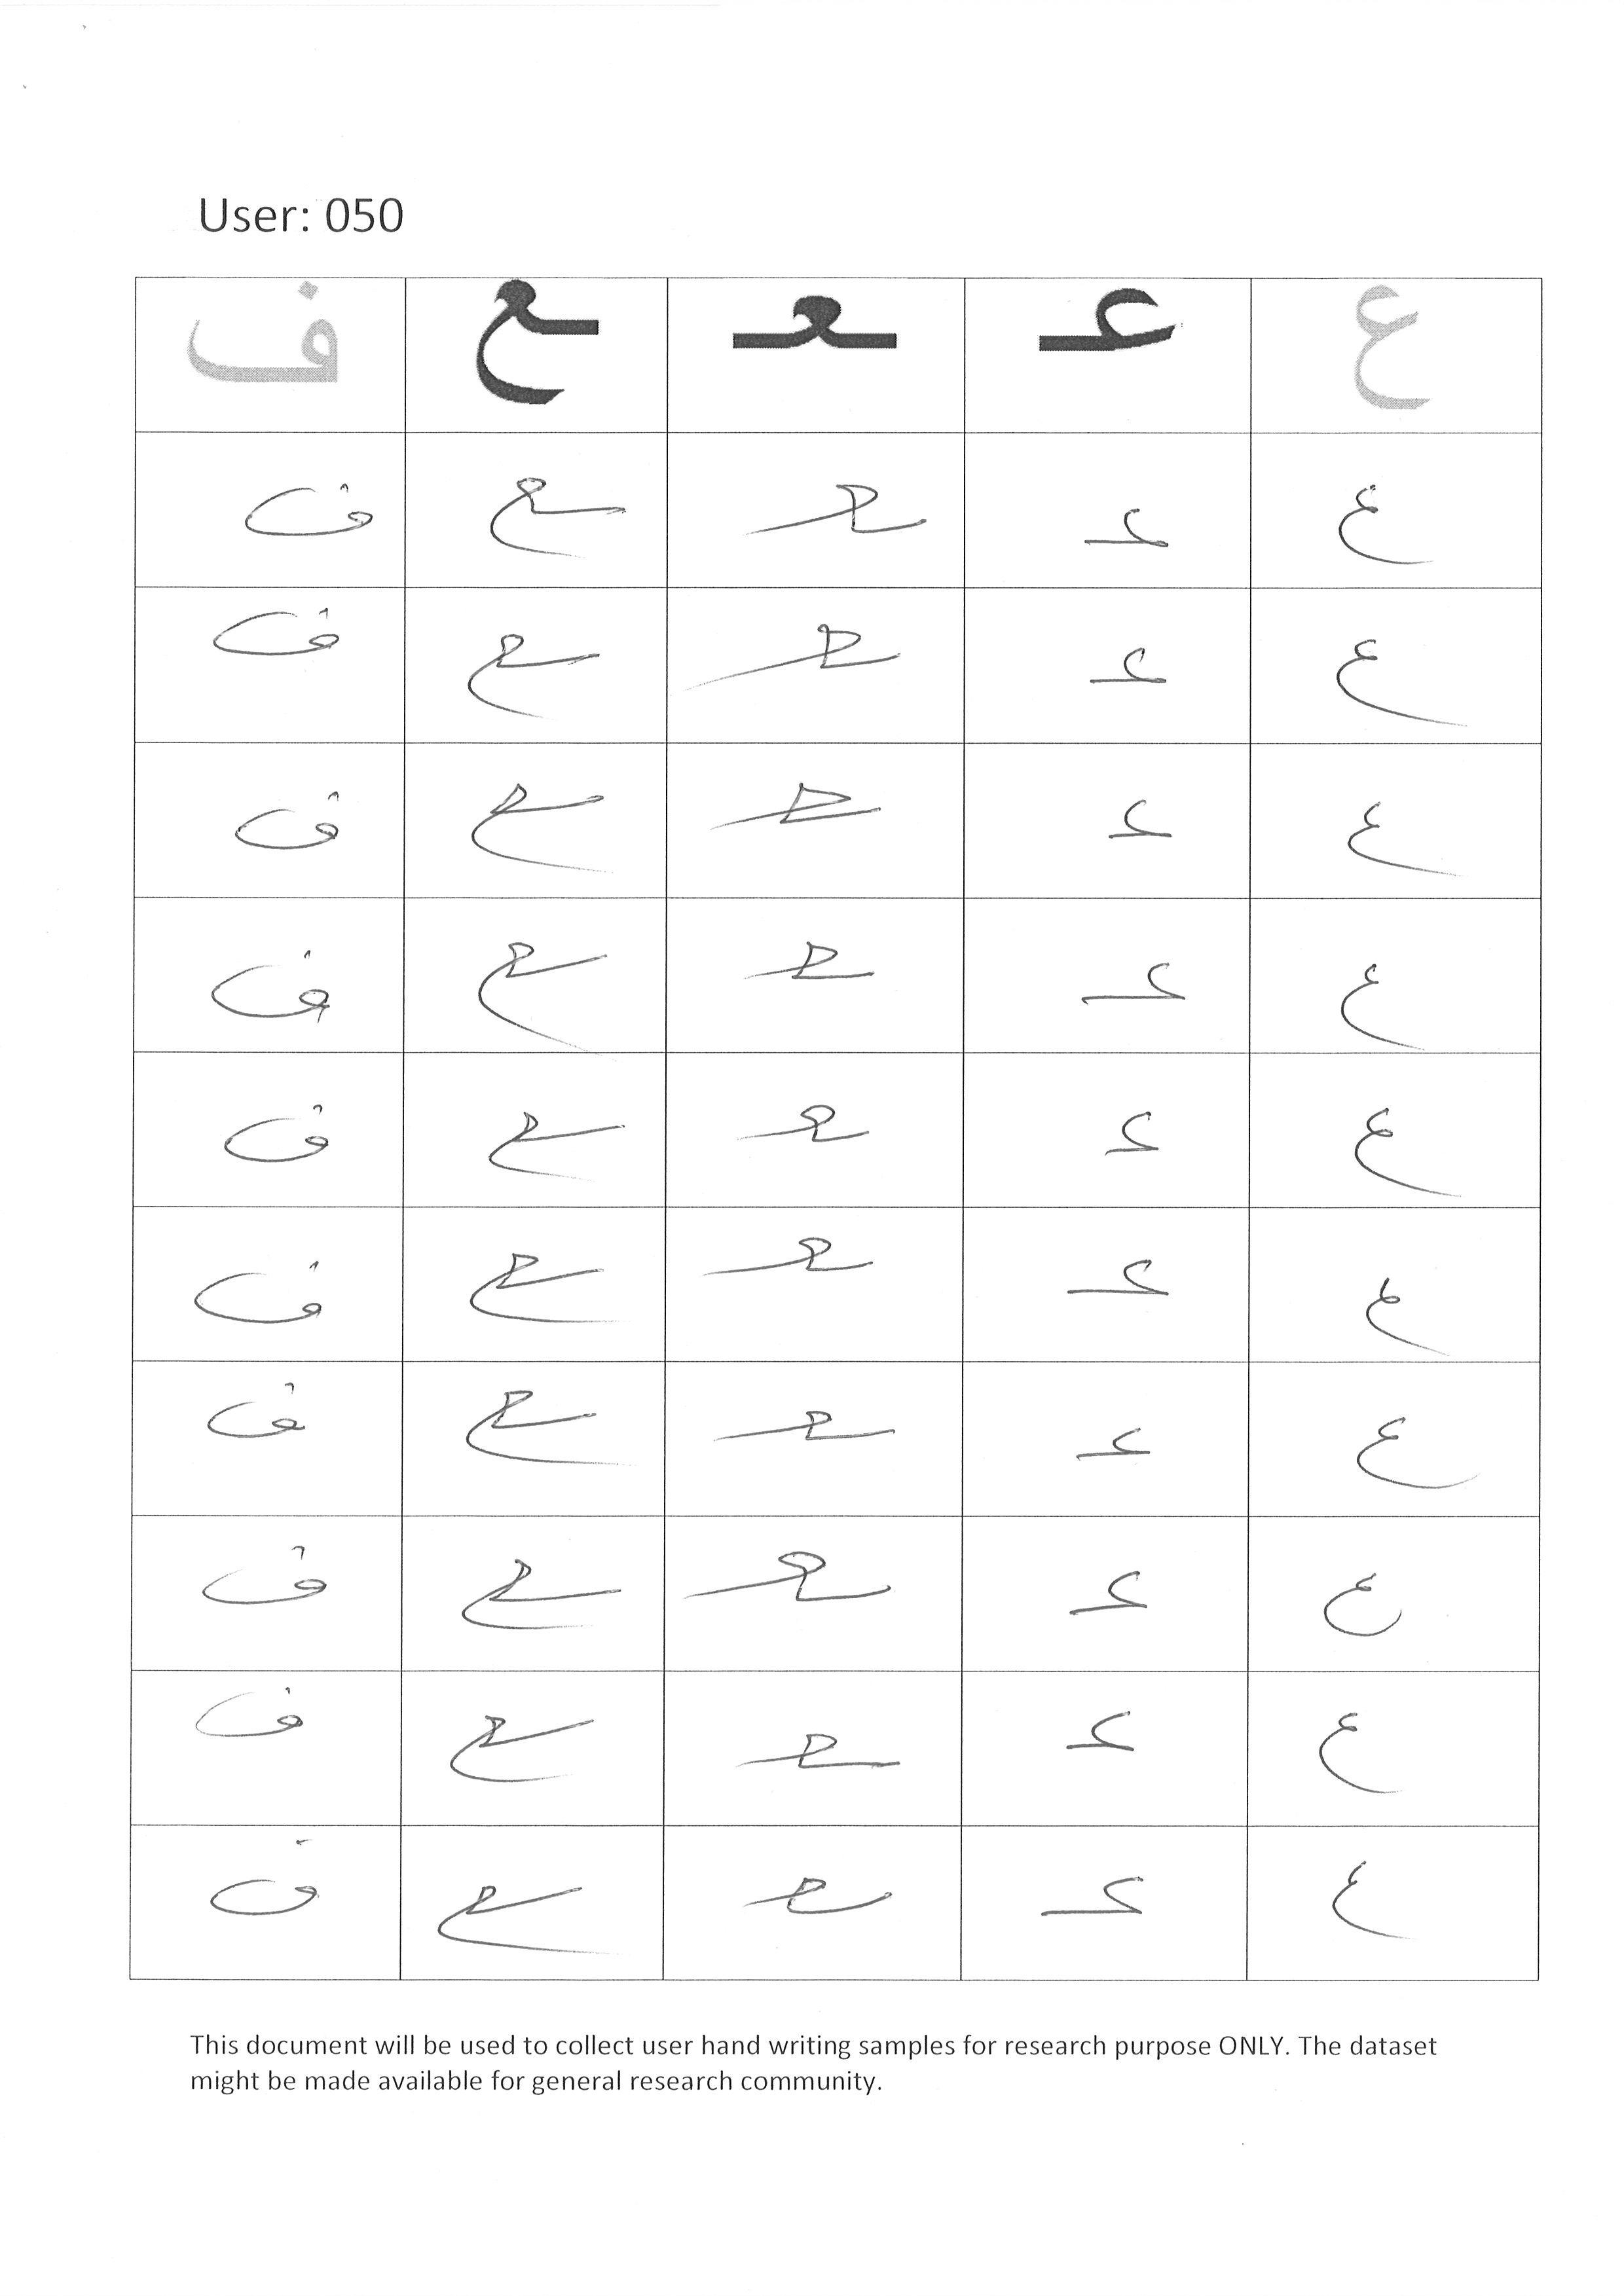 User: 050
ع عـ ـعـ ـع ف
ع عـ ـعـ ـع ف
ع عـ ـعـ ـع ف
ع عـ ـعـ ـع ف
ع عـ ـعـ ـع ف
ع عـ ـعـ ـع ف
ع عـ ـعـ ـع ف
ع عـ ـعـ ـع ف
ع عـ ـعـ ـع ف
ع عـ ـعـ ـع ف
ع عـ ـعـ ـع ف
This document will be used to collect user hand writing samples for research purpose ONLY. The dataset
might be made available for general research community.